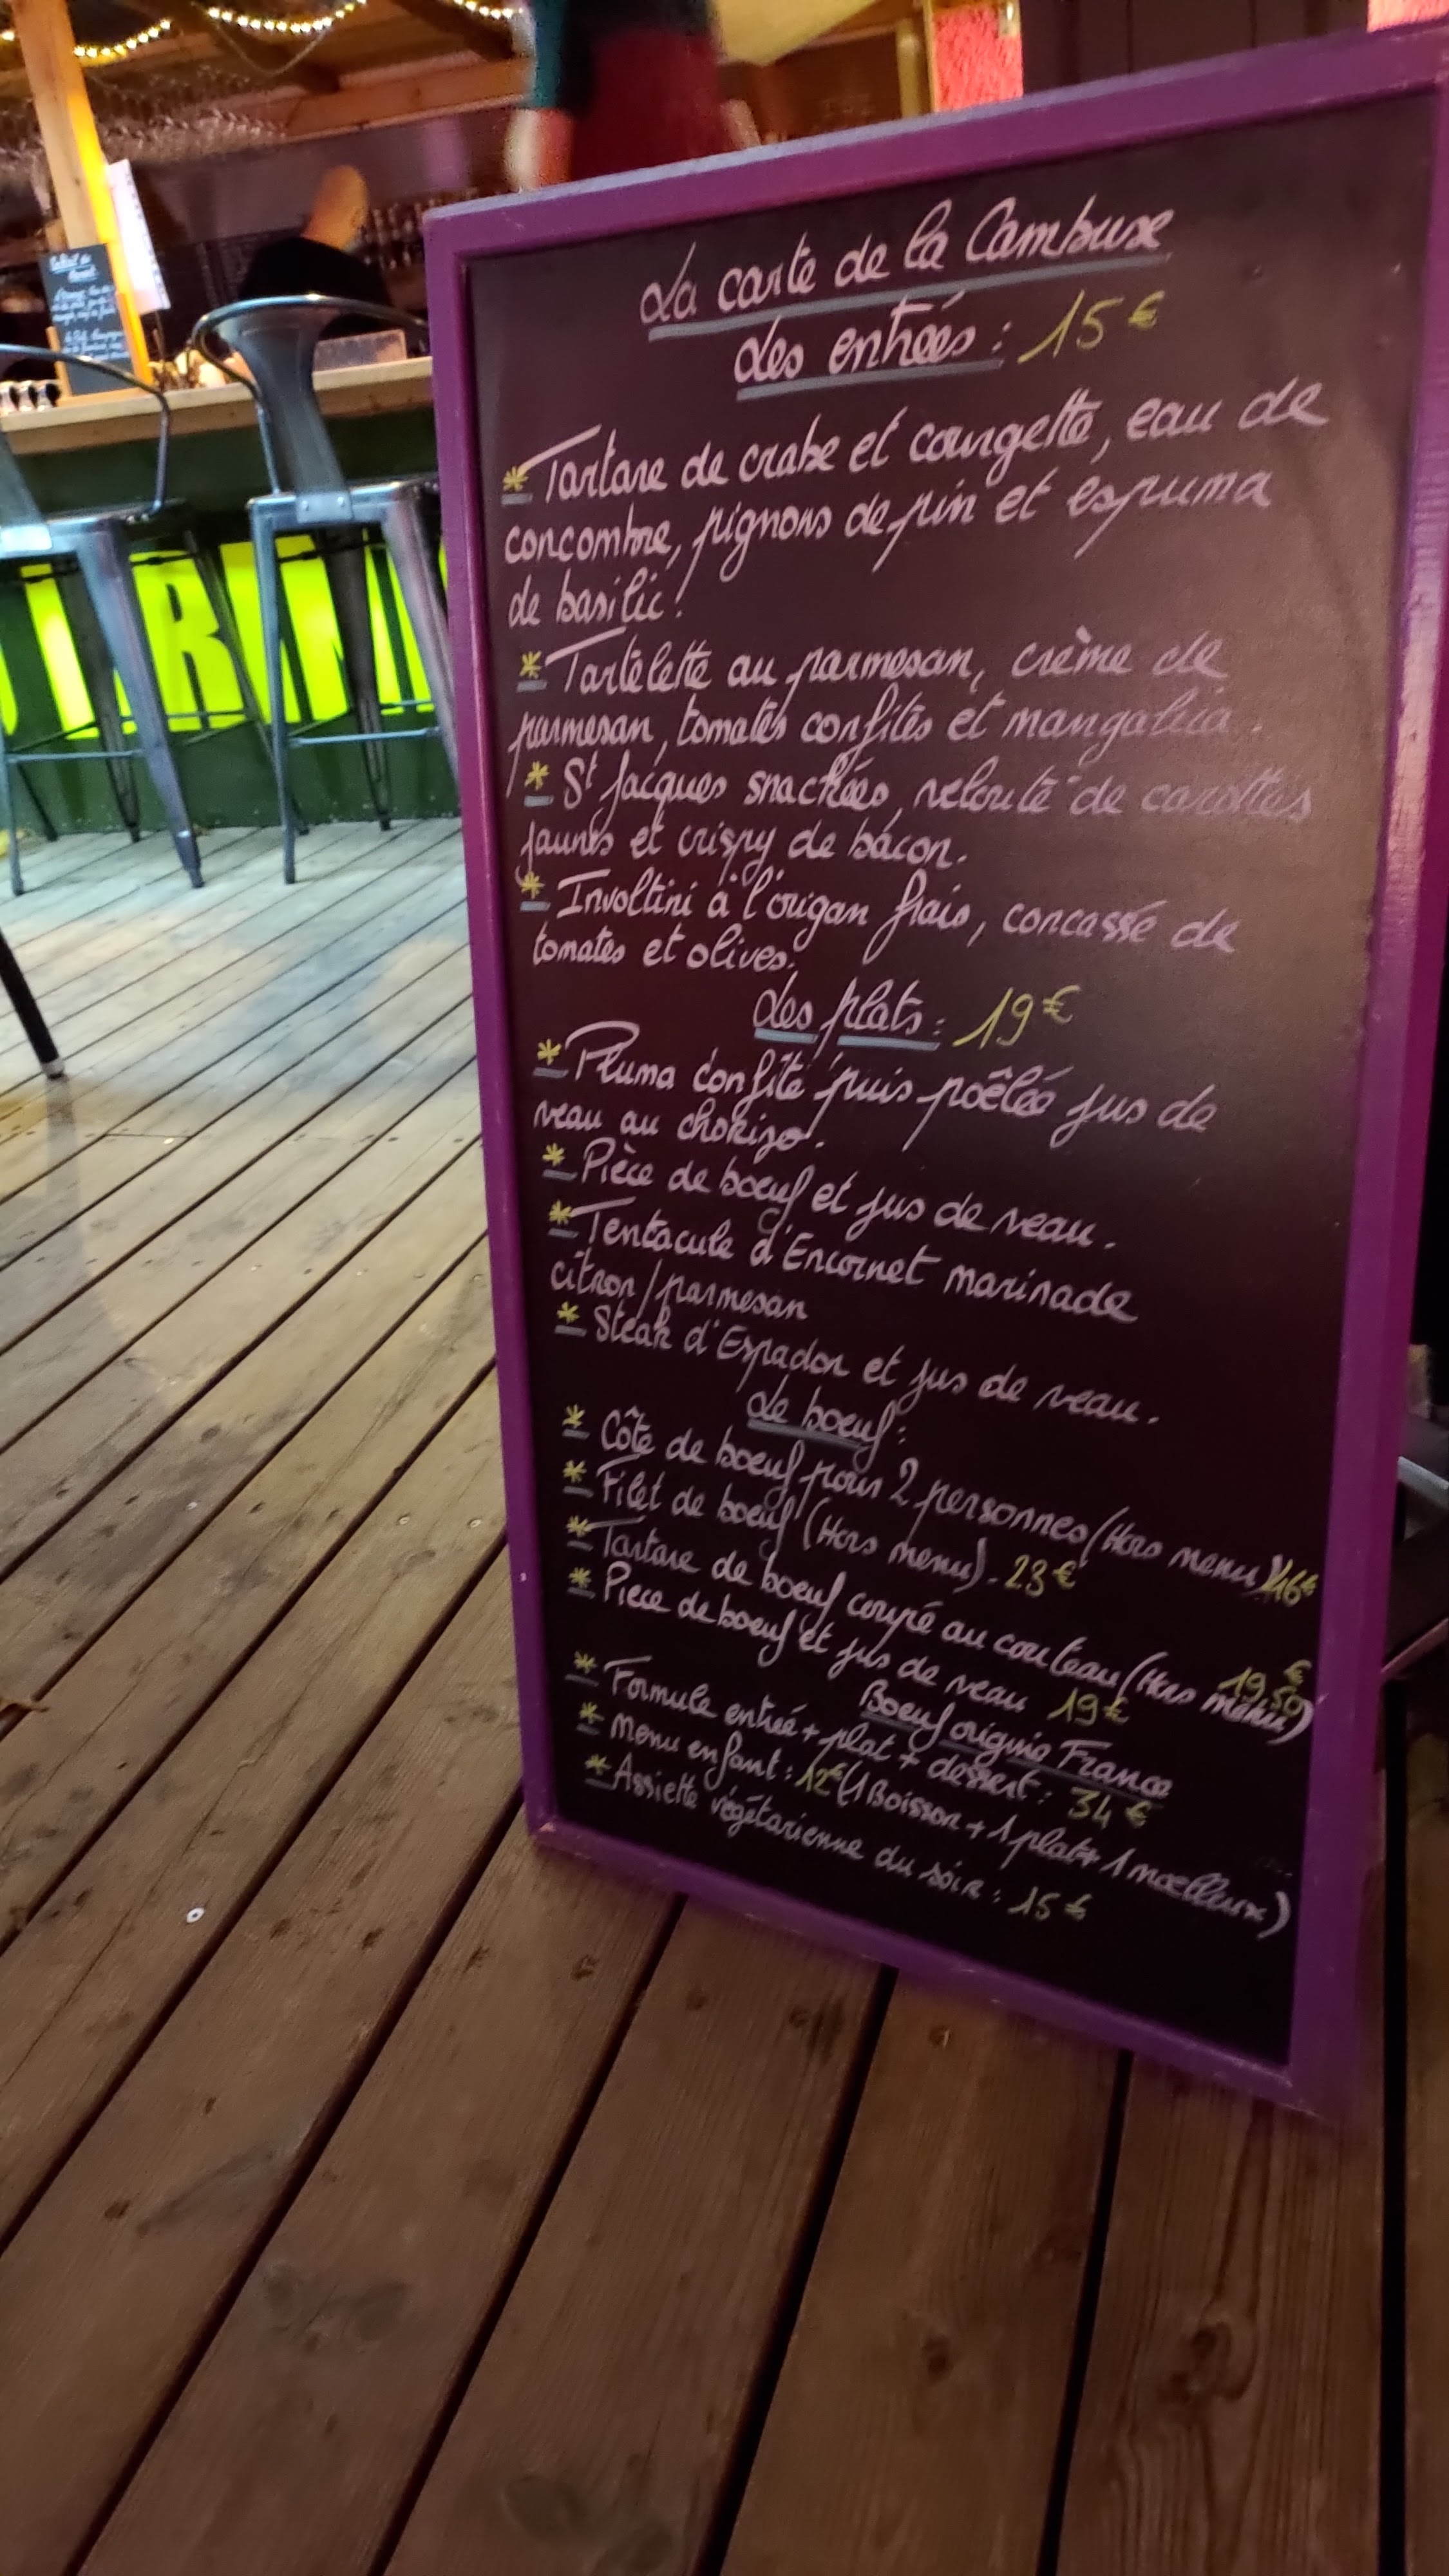 La carte de la Cambuse
Les entrées : 15€
* Tartare de crabe et courgette, eau de
concombre, pignons de pin et espuma
de basilic.
* Tartelette au parmesan, crème de
parmesan, tomates confites et
* St Jacques snackées, velouté de carottes
jaunes et crispy de bacon.
* Involtini à l'origan frais, concassé de
tomates et olives.
Les plats : 19€
* Pluma confite puis poêlée jus de
veau au chorizo.
* Pièce de boeuf et jus de veau.
* Tentacule d'Encornet marinade
citron/parmesan
* Steak d'Espadon et jus de veau.
Le boeuf :
* Côte de boeuf pour 2 personnes (Hors menu) 46€
* Filet de boeuf (Hors menu). 23€
* Tartare de boeuf coupé au couteau (Hors menu) 19,50€
* Piece de boeuf et jus de veau 19€
Boeuf origine France
* Formule entrée + plat + dessert : 34€
* Menu enfant : 12€ (1 Boisson + 1 plat + 1 moelleux)
* Assiette végétarienne du soir : 15€